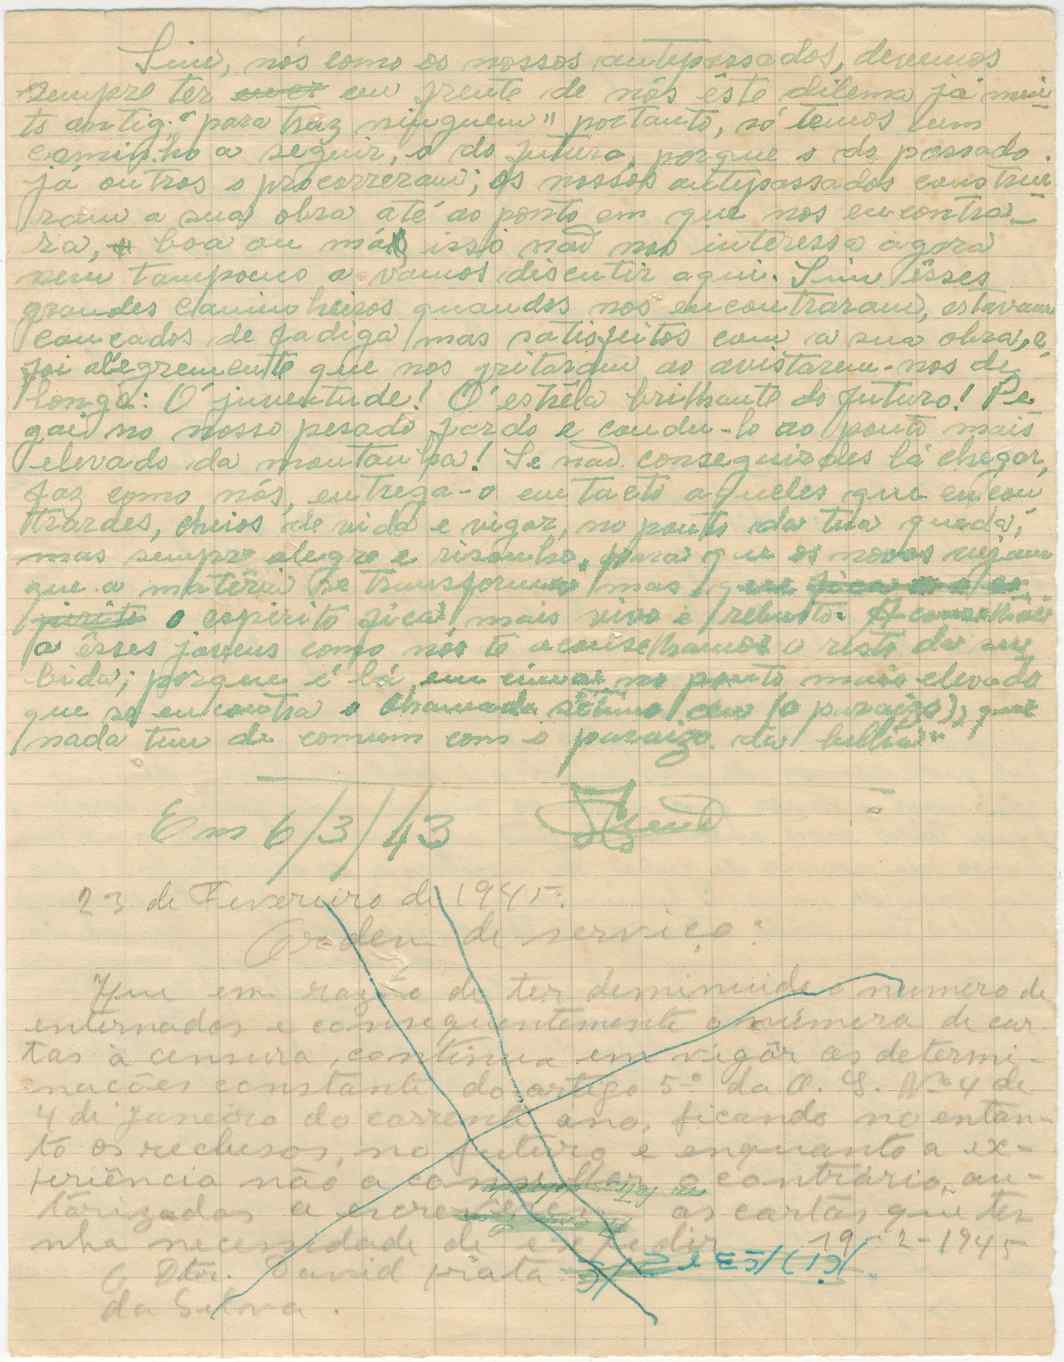 Sim, nós como os nossos antepassados, devemos
sempre ter em frente de nós êste dilema já mui
to antig.º "para traz ninguem" portanto, só temos um
caminho a seguir, o do futuro, porque o do passado
já outros o procorreram; os nossos antepassados construi
ram a sua obra até ao ponto em que nos encontra_
ra, boa ou má isso não nos interessa agora
nem tampouco a vamos discutir aqui. Sim êsses
grandes caminheiros quandos nos encontraram, estavam
cançados de fadiga mas satisfeitos com a sua obra, e
foi alegremente que nos gritaram ao avistarem-nos de
longe: Ó juventude! Ó estrêla brilhante do futuro! Pe
gai no nosso pesado fardo e condu-lo ao ponto mais
elevado da montanha! Se não conseguirdes lá chegar,
faz como nós, entrega-o intacto aqueles que encon
trardes, cheios de vida e vigor, no ponto da tua queda;
mas sempre alegre e risonho, para que os novos vejam
que a matéria se transforma mas
o espirito fica mais vivo e rebusto. Aconselha
a êsses jovens como nós te aconselhamos o resto da su
bida; porque é lá, em cima no ponto mais elevado
que se encontra o chamado sétimo ceu (o paraizo), que
nada tem de comum com o paraizo da biblia"
Em 6/3/43
23 de Fevereiro de 1945.
Ordem de serviço:
Que em razão de ter deminuido o numero de
internados e consequentemente o número de car
tas à censura, continua em vigôr as determi-
nações constante do artigo 5º da O. S. Nº 4 de
4 de janeiro do corrente ano, ficando no entan-
to os reclusos, no futuro e enquanto a ex-
periência não a o contrário, au-
torizados a escrever as cartas que te
nha necessidade de expedir 19-2-1945
O Dtor. David prata
da Silva.